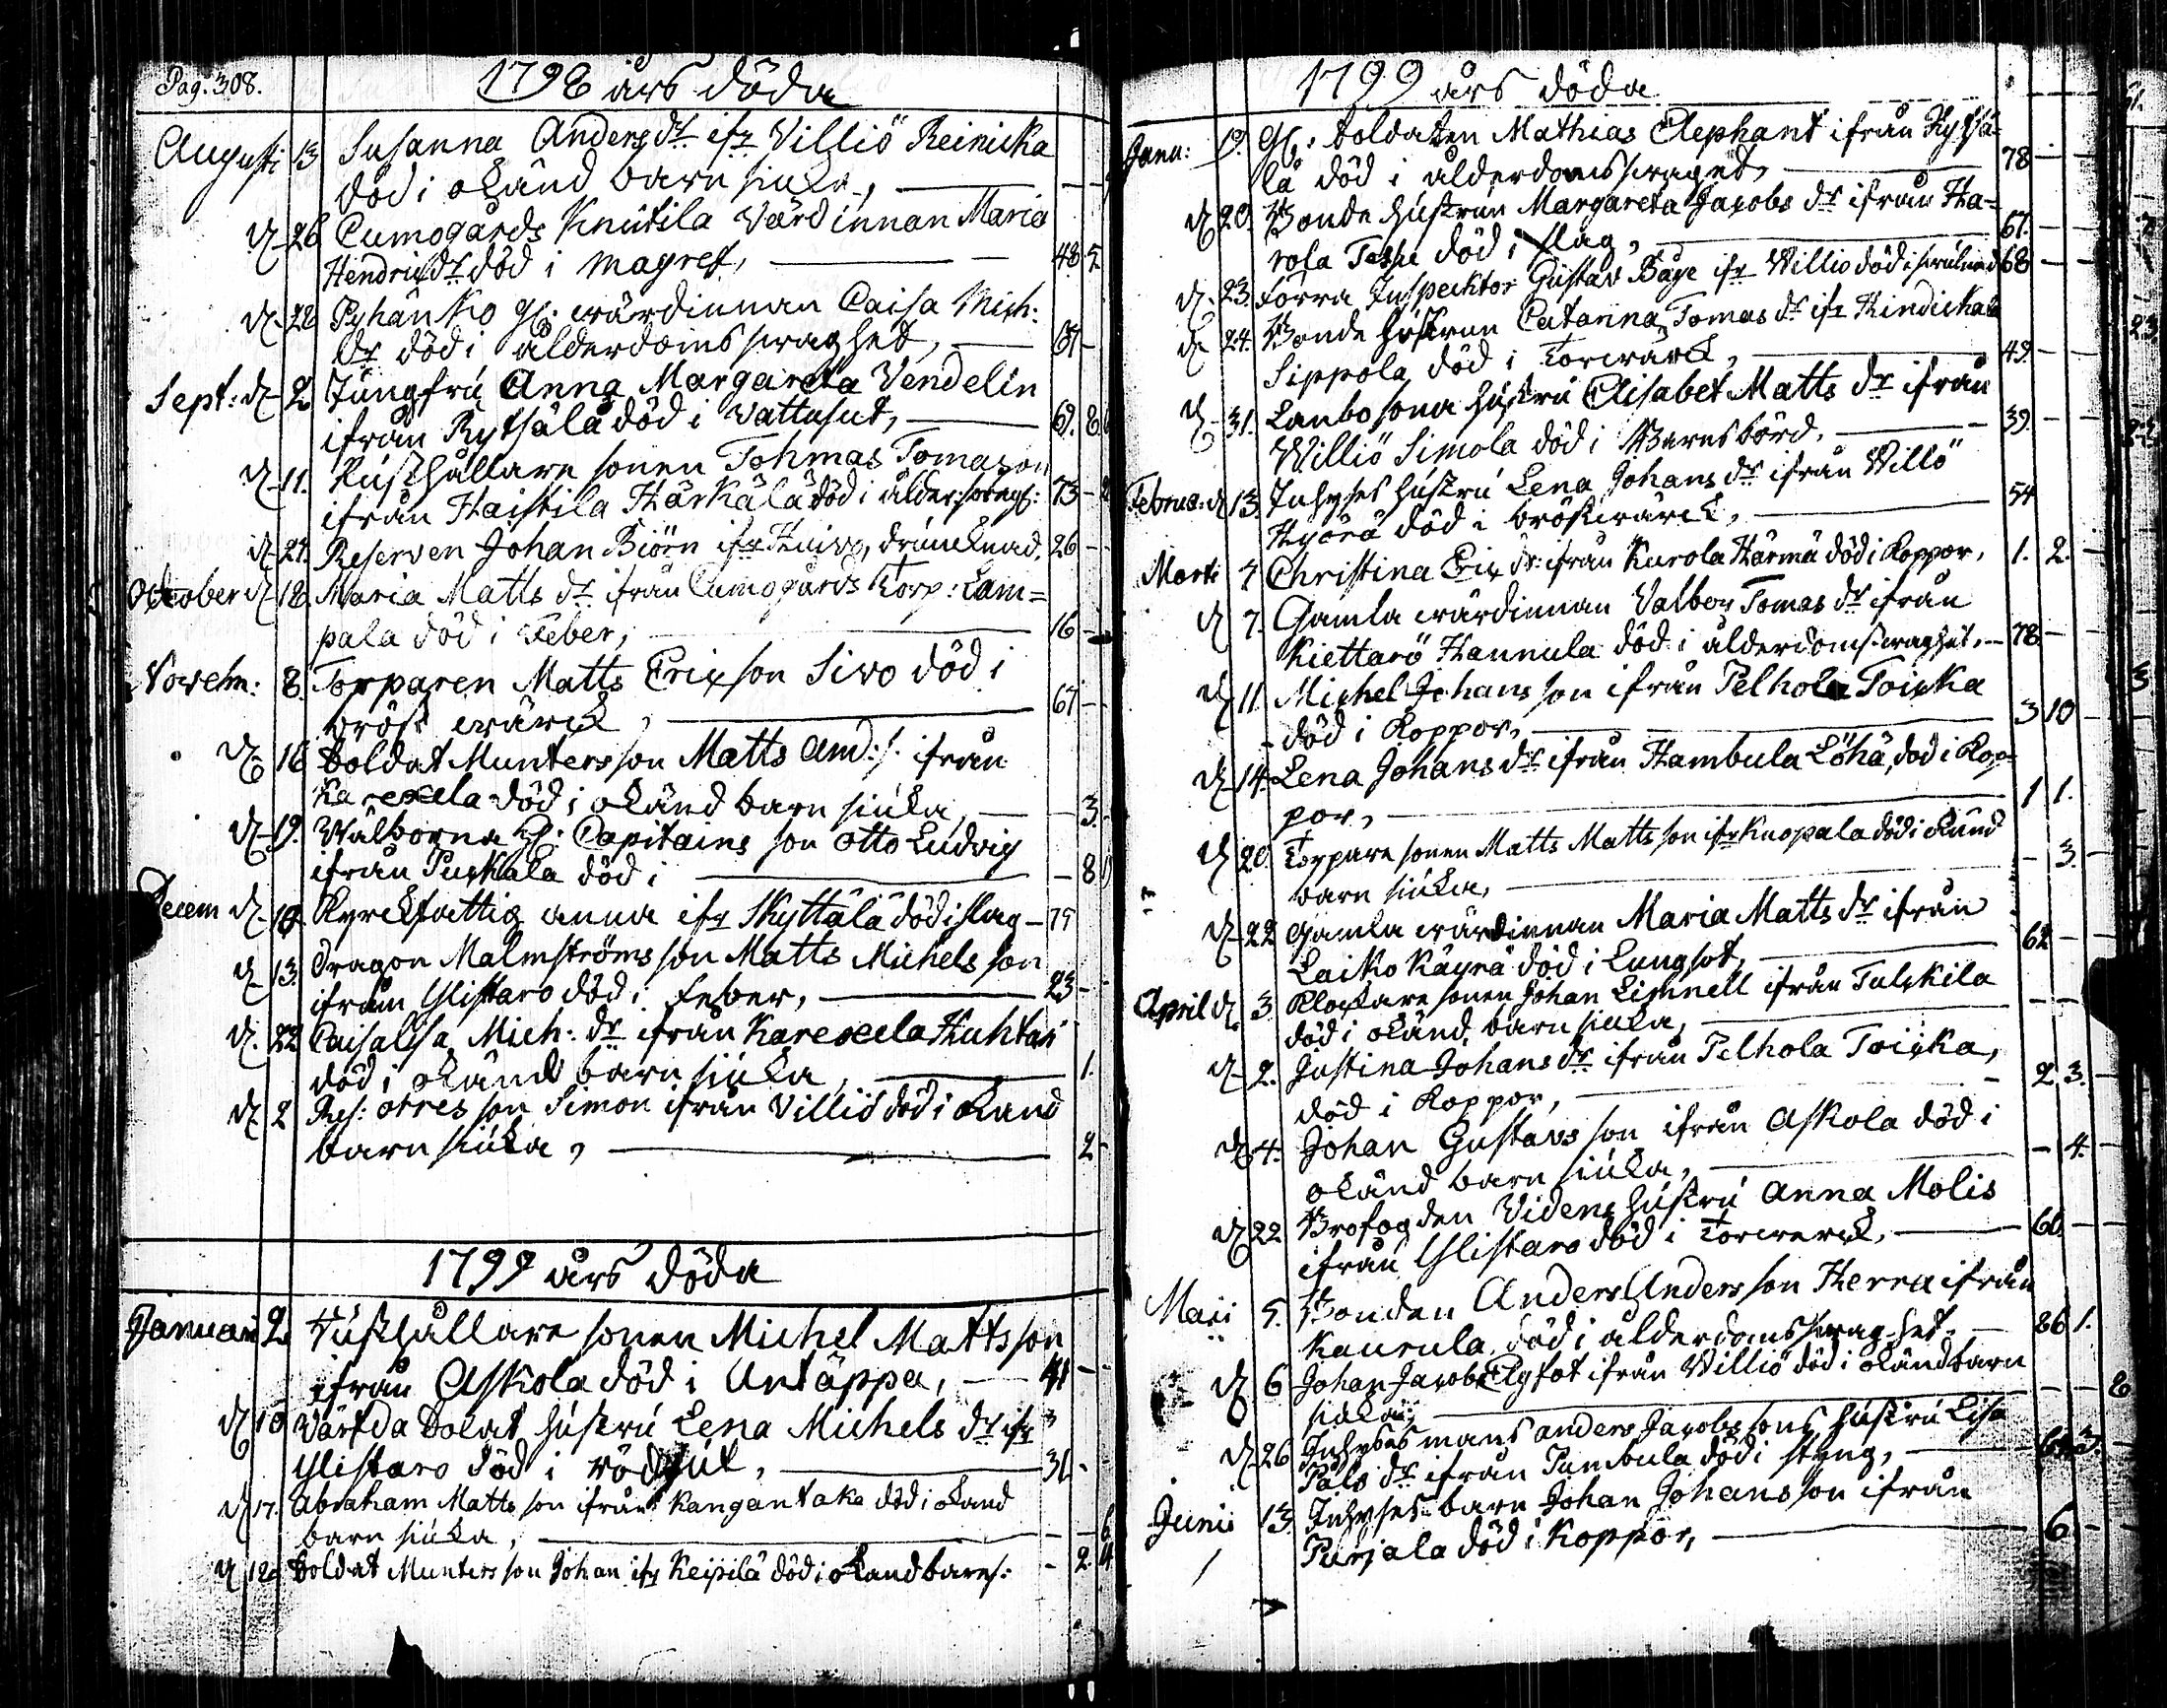 Pag. 308.
1798 års döda
Augusti 13 Susanna Anders dr ifr Villiö Reinicka
död i okänd barn siuka,
d 26 Cumogårds Knutila Värdinnan Maria
Hendrics dr död i magref, 48 5.
d 28 Pyhänko gl: wärdinnan Caisa Mich:
dr död i ålderdoms swaghet,
Sept: d 2 Jungfru Anna Margareta Vendelin
ifrån Rytsälä död i Vattusut, 69. 8
d 11. Rusthållare sonen Tohmas Tomason
ifrån Haistila Härkälä död i 73
d 27. Reserven Johan Biörn ifr druncknad, 26
October d 18 Maria Matts dr ifrån Cumogårds Torp: Lam=
pala död i Feber, 16
Novem: 8. Torparen Matts Ericson Sivo död i
bröst wärck, 67
d 16 Soldat Munters son Matts And: s. ifrån
Karexela död i okänd barn siuka, 3.
d 19. Wälborna H: Capitains son Otto Ludvig
ifrån Puckala död i 8
Decem d 10 Kyrckfattig anna ifr Skyttälä död i slag 79
d 13. Dragon Malmströms son Matts Michels son
ifrån Ylistaro död i Feber, 23
d. 22 Caisa Lisa Mich: dr ifrån Karexela Huhtas
död i okänd barn siuka, 1.
d 2 Res: orres son Simon ifrån Villiö död i okand
barn siuka, 2
1799 års döda
Januari 2. Rusthållare sonen Michel Matts son
ifrån Askola död i Antäppa, 41
d 10 Värfda Soldat hustru Lena Michels dr ifr
Ylistaro död i rödsut, 31.
d 17. Abraham Matts son ifrån Kangantaka död i okand
barn siuka, 6
d 12 Soldat Munters son Johan ifr Keipilä död i okand barns: 2. 4
1799 års döda
Janu: 19. Gl: Soldaten Mathias Elephant ifrån Rytsä=
lä död i ålderdoms swaghet, 78
d 20. Bonde hustrun Margareta Jacobs dr ifrån Ha=
rola Taspe död i slag, 67.
d. 23. Förra Inspecktor Gustav Båge ifr Villio död i 68
d 24. Bonde hustrun Catarina Tomas dr ifr
Sippola död i Torrwärck, 49.
d. 31. Lanbo sona hustru Elisabet Matts dr ifrån
Williö Simola död i Barnsbörd, 39.
Februa: d 13. Inhyses hustru Lena Johans dr ifrån Villö
Hyörä död i bröstwärck, 54
Marti 4 Christina Eric dr: ifrån Kurola Härmä död i Koppor, 1. 2.
d 7. Gamla wärdinnan Valbor Tomas dr ifrån
Kiettarö Hannula död i ålderdoms swaghet, 78
d 11 Michel Johans son ifrån Pelhola Toicka
död i Koppor, 3 10
d 14 Lena Johans dr ifrån Hambula Löhä, död i Kop=
por, 1 1.
d 20. Torpare sonen Matts Matts son ifr Knopala död i okänd
barn siuka, 3.
d 22 Gamla wärdinnan Maria Matts dr ifrån
Laiko Käyrä död i Lungsot, 62
April d 3 Klockare sonen Johan Limnell ifrån Tulckila
död i okänd barn siuka,
d 2. Justina Johans dr ifrån Pelhola Toicka,
död i Koppor, 2 3.
d 4. Johan Gustavs son ifrån Askola död i
okänd barn siuka, 4.
d 22 Brofogden Videns hustru Anna Molis
ifrån Ylistaro död i Torrwerck, 60.
Maii 5. Bonden Anders Anders son Herra ifrån
Kaurula, död i ålderdoms swaghet, 86 1.
d 6 Johan Jacobs ifrån Williö död i okänd barn
siuka,
d 26 Inhyses mans anders Jacobs sons hustru Lisa
Påls dr ifrån Pumbula död i styng,
Junii 13. Inhyses barn Johan Johans son ifrån
Purjala död i Koppor, 6